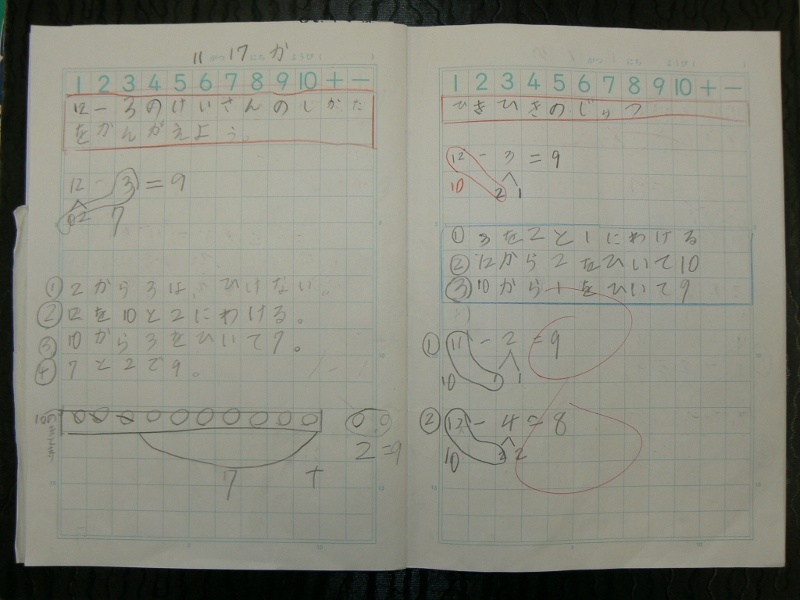 11 がつ 17 にち か ようび
1 2 3 4 5 6 7 8 9 10 + −
12−3のけいさんのしかた
をかんがえよう。
12 − 3 = 9
10 2 7
① 2から3は、ひけない。
② 12を10と2にわける。
③ 10から3をひいて7。
④ 7と2で9。
2=9
7 +
1 2 3 4 5 6 7 8 9 10 + −
ひきひきのじゅつ
12 − 3 = 9
10 2 1
① 3を2と1にわける
② 12から2をひいて10
③ 10から1をひいて9
① 11 − 2 = 9
10 1 1
② 12 − 4 = 8
10 2 2